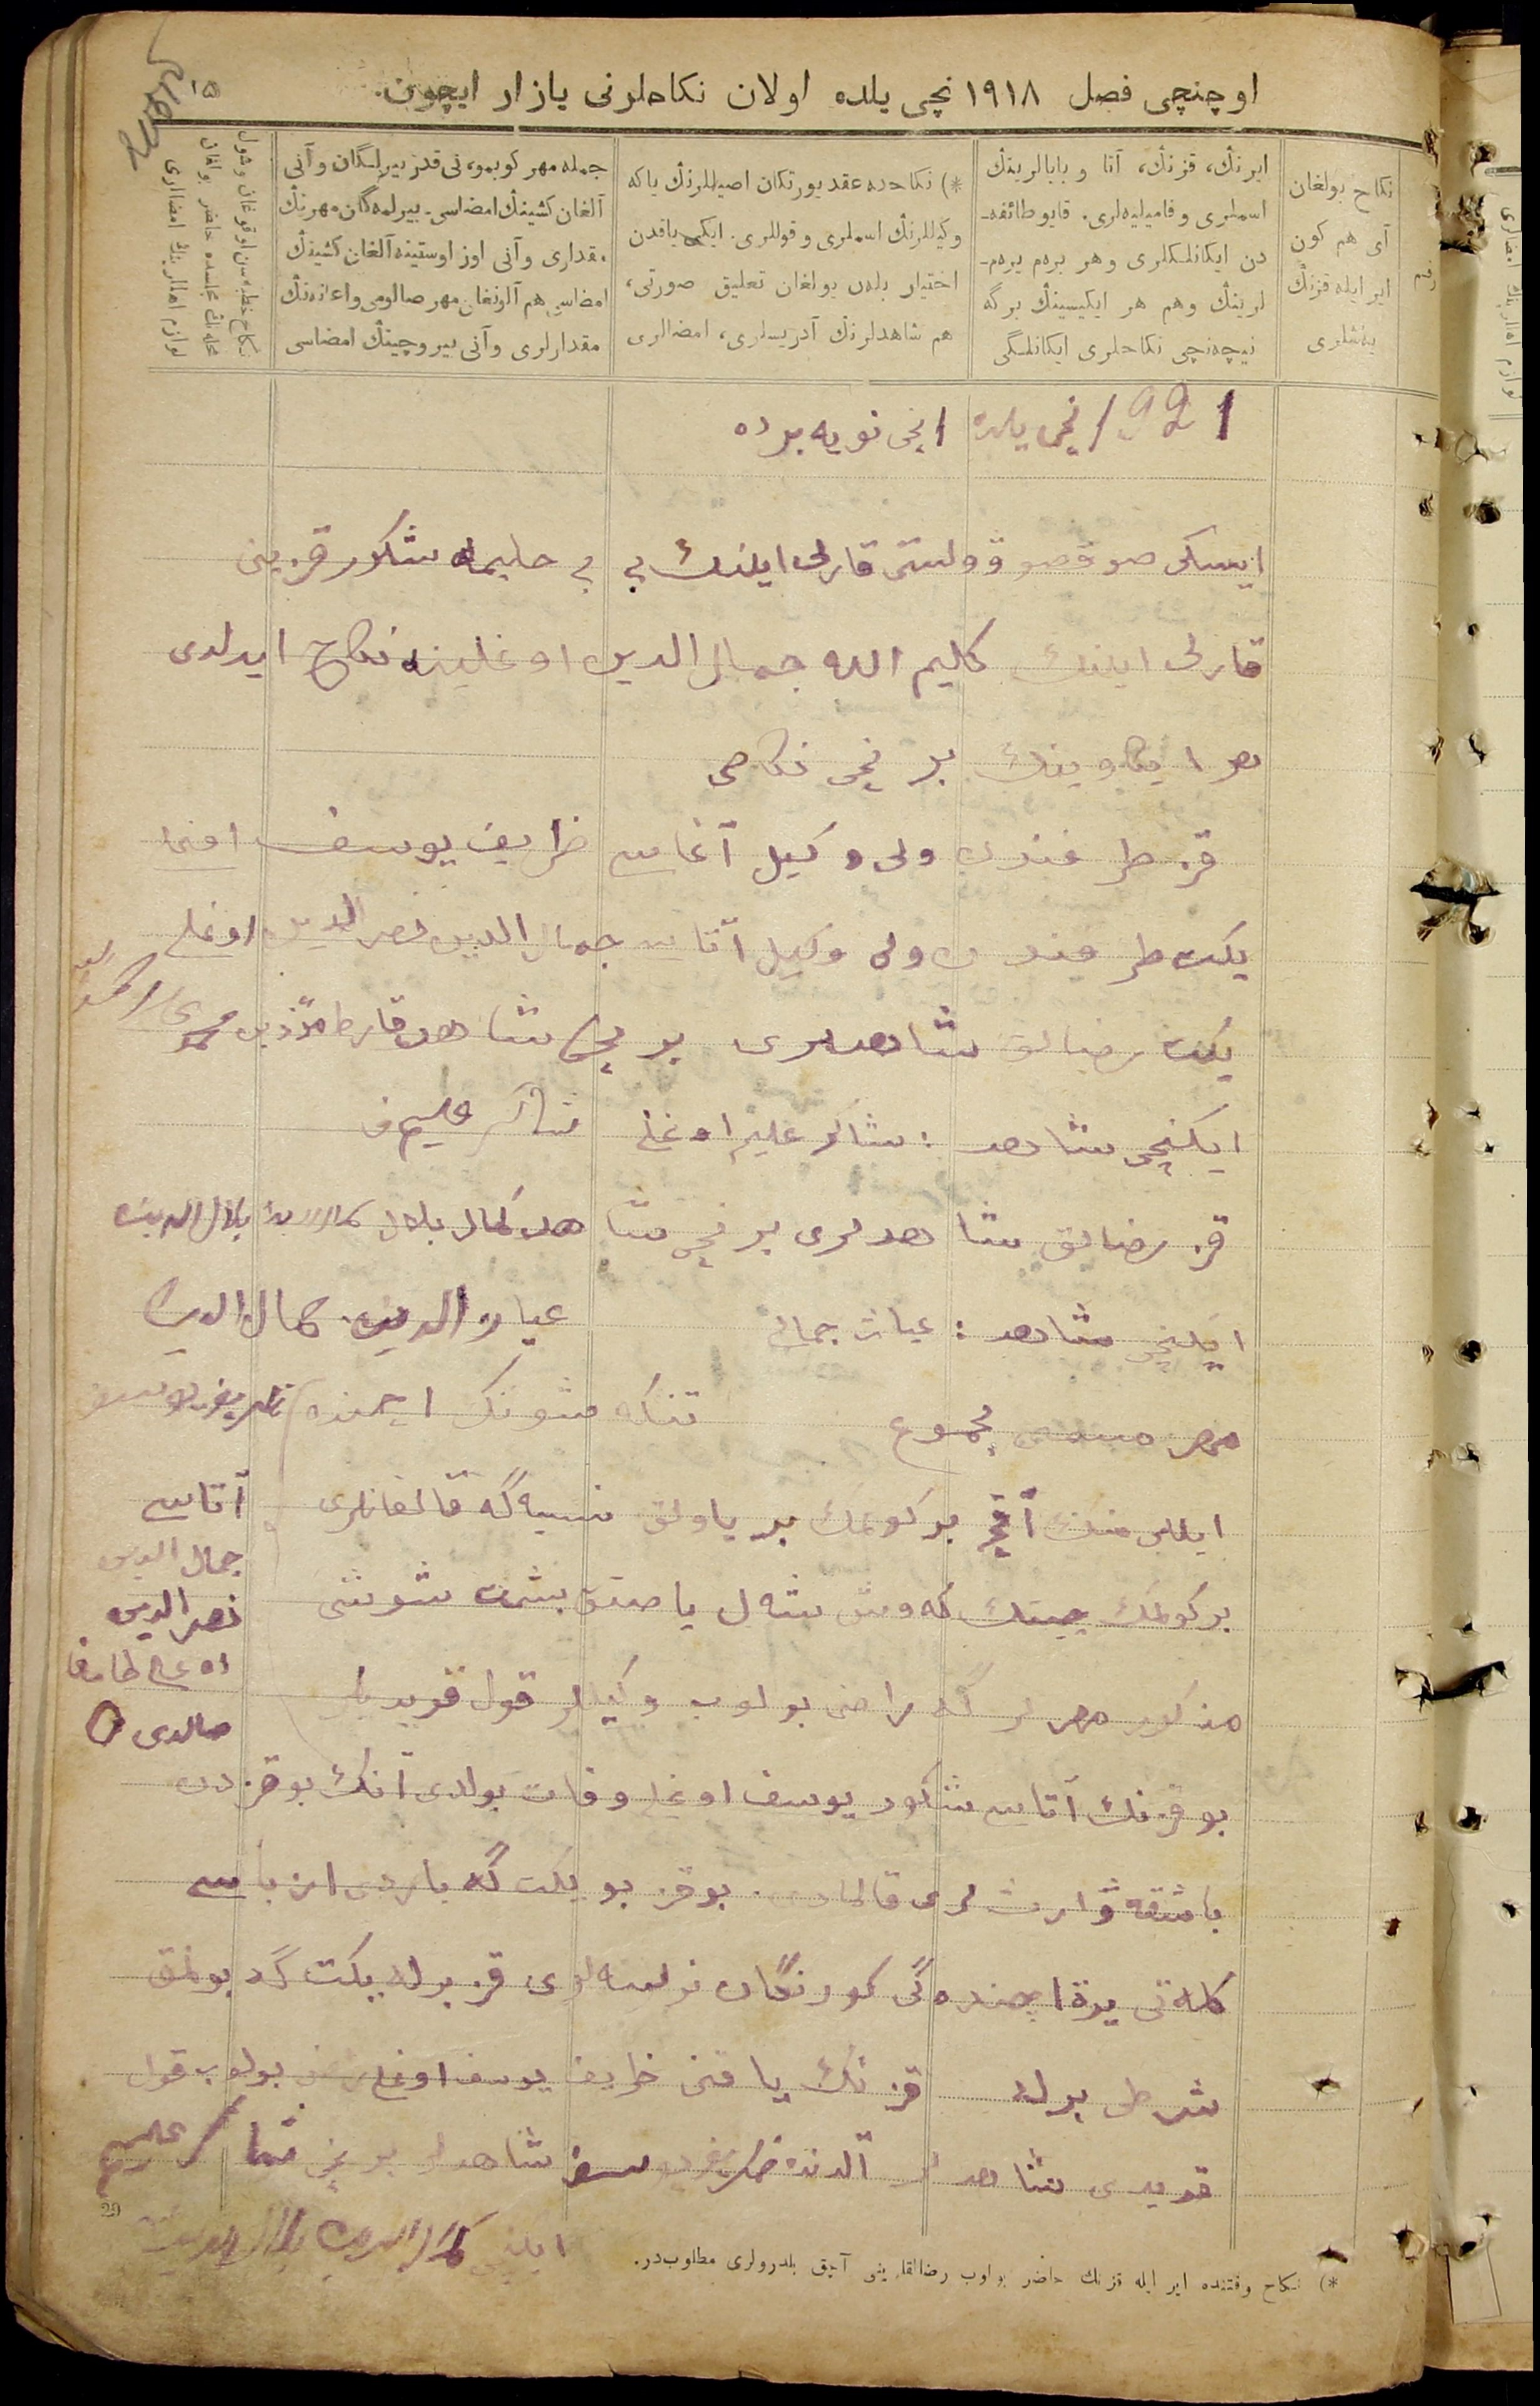 اوچنچی فصل ۱۹۱۸ نچی یلده اولان نکاحلرنی یازار ایچون.
۱۵
نکاح بولغان
آی هم کون
ایر ایله قزنڭ
یەشلری
ایرنڭ، قزنڭ، آتا و بابالرینڭ
اسملری و فامیلیەلری. قایو طائفه‌ـ
دن ایکانلکلری وهر برەم برەم‌ـ
لرینڭ وهم هر ایکیسینڭ برگه
نیچەنچی نکاحلری ایکانلگی
*) نکاحده عقد یورتکان اصیللرنڭ یاکه
وکیللرنڭ اسملری و قوللری. ایکی یاقدن
اختیار بلەن بولغان تعلیق صورتی،
هم شاهدلرنڭ آدریسلری، امضالری
جمله مهر کوبمو، نی قدر بیرلگان وآنی
آلغان کشینڭ امضاسی. بیرلمەگان مهرنڭ
مقداری وآنی اوز اوستینه آلغان کشینڭ
امضاسی هم آلونغان مهر صالومی واعانەنڭ
مقدارلری وآنی بیروچینڭ امضاسی
نکاح خطبەسن اوقوغان وشول
محلەنڭ مجلسده حاضر بولغان
لوازم اهللرینڭ امضالری
1921 نچی یلده ۱نچی نویەبرده
ایسکی صوقصو وولستی قارلی ایلنڭ بی بی حلیمه شکور قزینی
قارلی ایلنڭ کلیم الله جمال الدین اوغلینه نکاح ایدلدی
هر ایکاوینڭ برنچی نکاحی
قز طرفندن ولی وکیل آغاسی ظریف یوسف اوغلی
یکت طرفیندن ولی وکیل آتاسی جمال الدین نصر الدین اوغلی
یکت رضالق شاهدلری برنچی شاهد قارط مؤذن
ایکنچی شاهد : شاکر علیم اوغلی شاکر علیم
قز رضالق شاهدلری برنچی شاهد کمال بلال کمال الدین بلال الدین
ایکنچی شاهد : غیاث جمالی غیاث الدین کمال الدین
مهر مجموع تنکه شونڭ ایچنده ظریف یوسف
ایللی منڭ آقچه بر کولمک بر یاولق نسیەگه قالغانلری
آتاسی
جمال الدین
بر کولمک چیتک کەوش شەل یاصتق بشمت شوشی
نصر الدین
اوغلی طامغا
مذکور مهرلرگه راضی بولوب وکیللر قول قویدیلر
صالدی
بو قزنڭ آتاسی شکور یوسف اوغلی وفات بولدی آنڭ بو قزدن
باشقه وارثلری قالمادی. بو قز بو یکتگه باردی ار باسی
شرطی برله قزنڭ یاقنی ظریف یوسف اوغلی راضی بولوب قول
قویدی شاهدلر آلدنده ظریف یوسف شاهدلر برنچی شاکر علیم
ایکنچی کمال الدین بلال الدین
29
*) نکاح وقتنده ایر ایله قزنڭ حاضر بولوب رضالقلارینی آچق بلدرولری مطلوبدر.